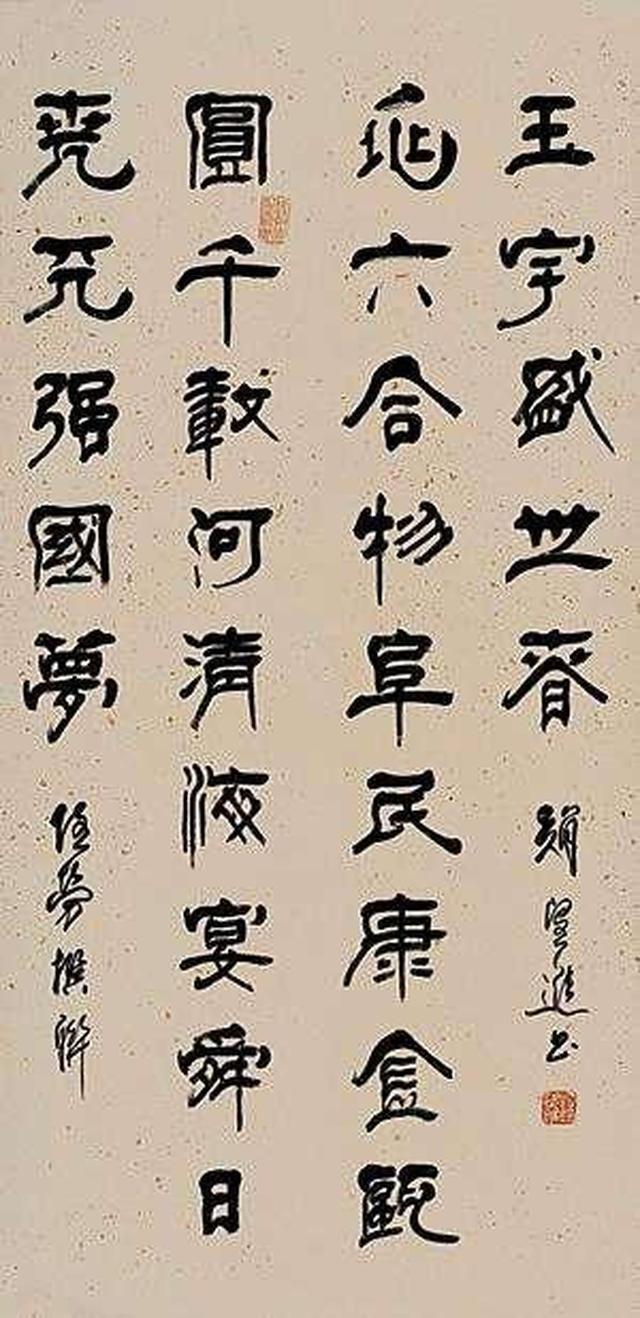 圓千載河清海宴舜日
堯天强國夢 任勞撰聯
兆六合物阜民康金甌
玉宇盛世春 趙望進書